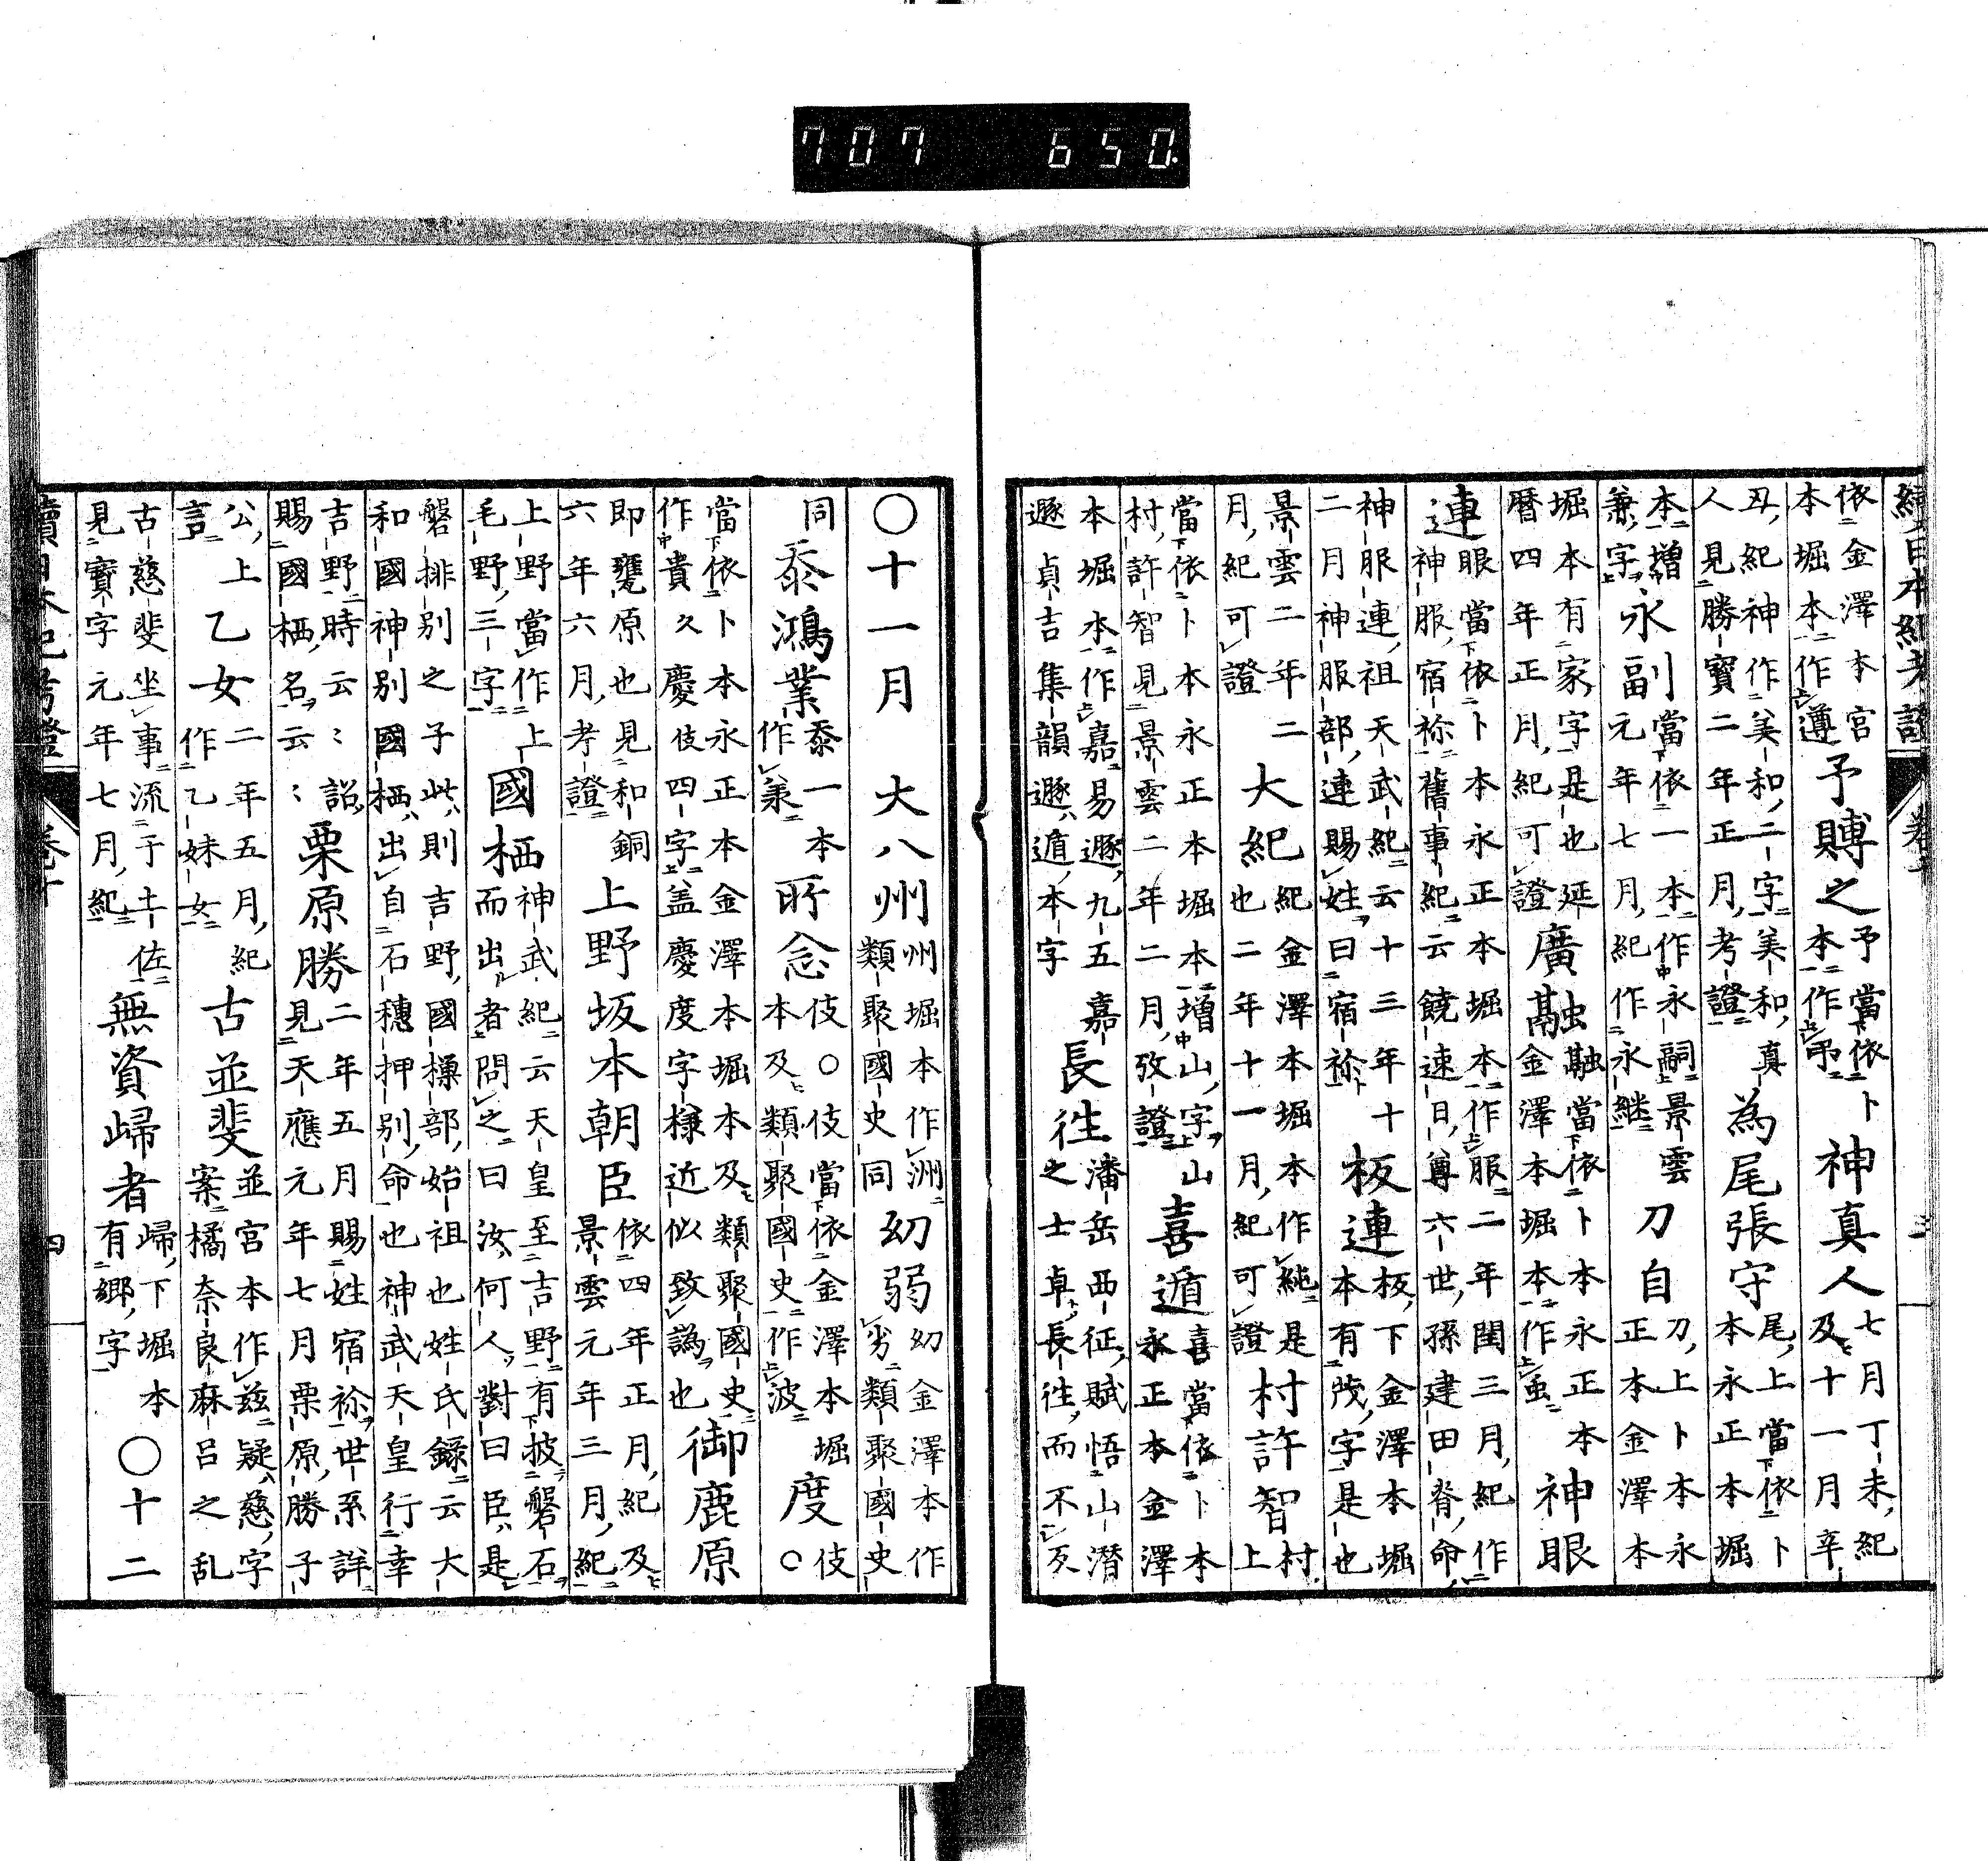 707 650.
續日本紀考證 卷十 三
依金澤本宮本堀本作遵 予賻之 予當依卜本作弔 神真人 七月丁未紀及十一月辛
丑紀神作美和二字美和真人見勝寶二年正月考證 為尾張守 尾上當依卜本永正本堀
本增兼字 永副 當依一本作永嗣景雲元年七月紀作永繼 刀自 刀上卜本永正本金澤本
堀本有家字是也延暦四年正月紀可證 廣融 融當依卜本永正本金澤本堀本作䖝 神眼
連 眼當依卜本永正本堀本作服二年閏三月紀作神服宿祢舊事紀云饒速日尊六世孫建田脊命
神服連祖天武紀云十三年十二月神服部連賜姓曰宿祢 板連 板下金澤本堀本有茂字是也
景雲二年二月紀可證 大紀 紀金澤本堀本作純是也二年十一月紀可證 村許智 村上
當依卜本永正本堀本增山字山村許智見景雲二年二月攷證 喜遁 喜當依卜本永正本金澤
本堀本作嘉易遯九五嘉遯貞吉集韻遯遁本字 長往 潘岳西征賦悟山潜之士卓長往而不反
○十一月 大八州 州堀本作洲類聚國史同 幼弱 幼金澤本作劣類聚國史
同 忝鴻業 忝一本作兼 所念 伎○伎當依金澤本堀本及類聚國史作波 度 伎○
當依卜本永正本金澤本堀本及類聚國史作貴久慶伎四字盖慶度字様近似致譌也 御鹿原
即甕原也見和銅六年六月考證 上野坂本朝臣 依四年正月紀及景雲元年三月紀
上野當作上毛野三字 國栖 神武紀云天皇至吉野有披磐石而出者問之曰汝何人對曰臣是
磐排別之子此則吉野國樔部始祖也姓氏録云大和國神別國栖出自石穗押別命也神武天皇行幸
吉野時云〻詔賜國栖名云〻 栗原勝 二年五月賜姓宿祢世系詳見天應元年七月栗原勝子
公上 乙女 二年五月紀作乙妹女 古並斐 並宮本作兹疑慈字案橘奈良麻呂之乱
古慈斐坐事流于土佐見寶字元年七月紀 無資歸者 歸下堀本有郷字 ○十二
續日本紀考證 卷十 四